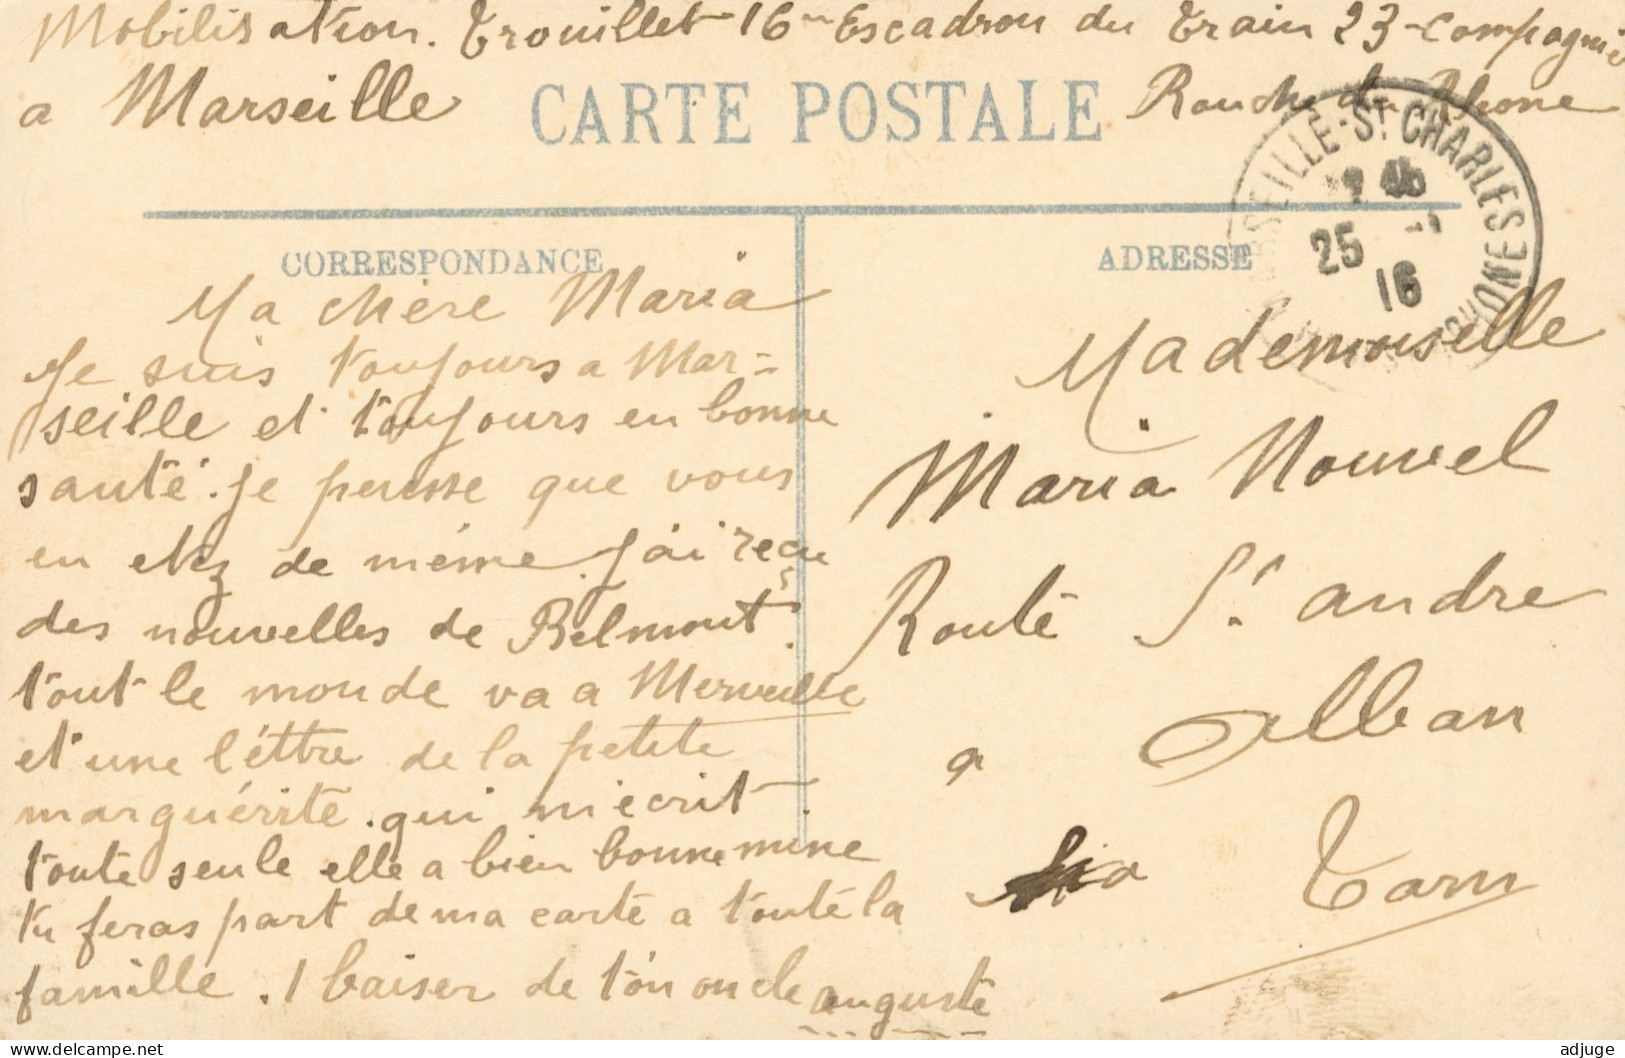 Mobilisation. Trouillet 16 Escadron du Train 23 Compagnie
a Marseille
Rouche du Rhone
CARTE POSTALE
SEILLE-St CHARLES
25
16
CORRESPONDANCE
ADRESSE
Ma chère Maria
Je suis toujours a Mar=
seille et toujours en bonne
santé. Je pensse que vous
en etez de même. J'ai reçu
des nouvelles de Belmont
tout le monde va a Merveille
et une léttre de la petite
marguérite. qui m'ecrit
toute seule elle a bien bonne mine
tu feras part de ma carte a toute la
famille. 1 baiser de ton oncle auguste
Mademoiselle
Maria Nouvel
Route St. andre
a Alban
Tarn
adjuge